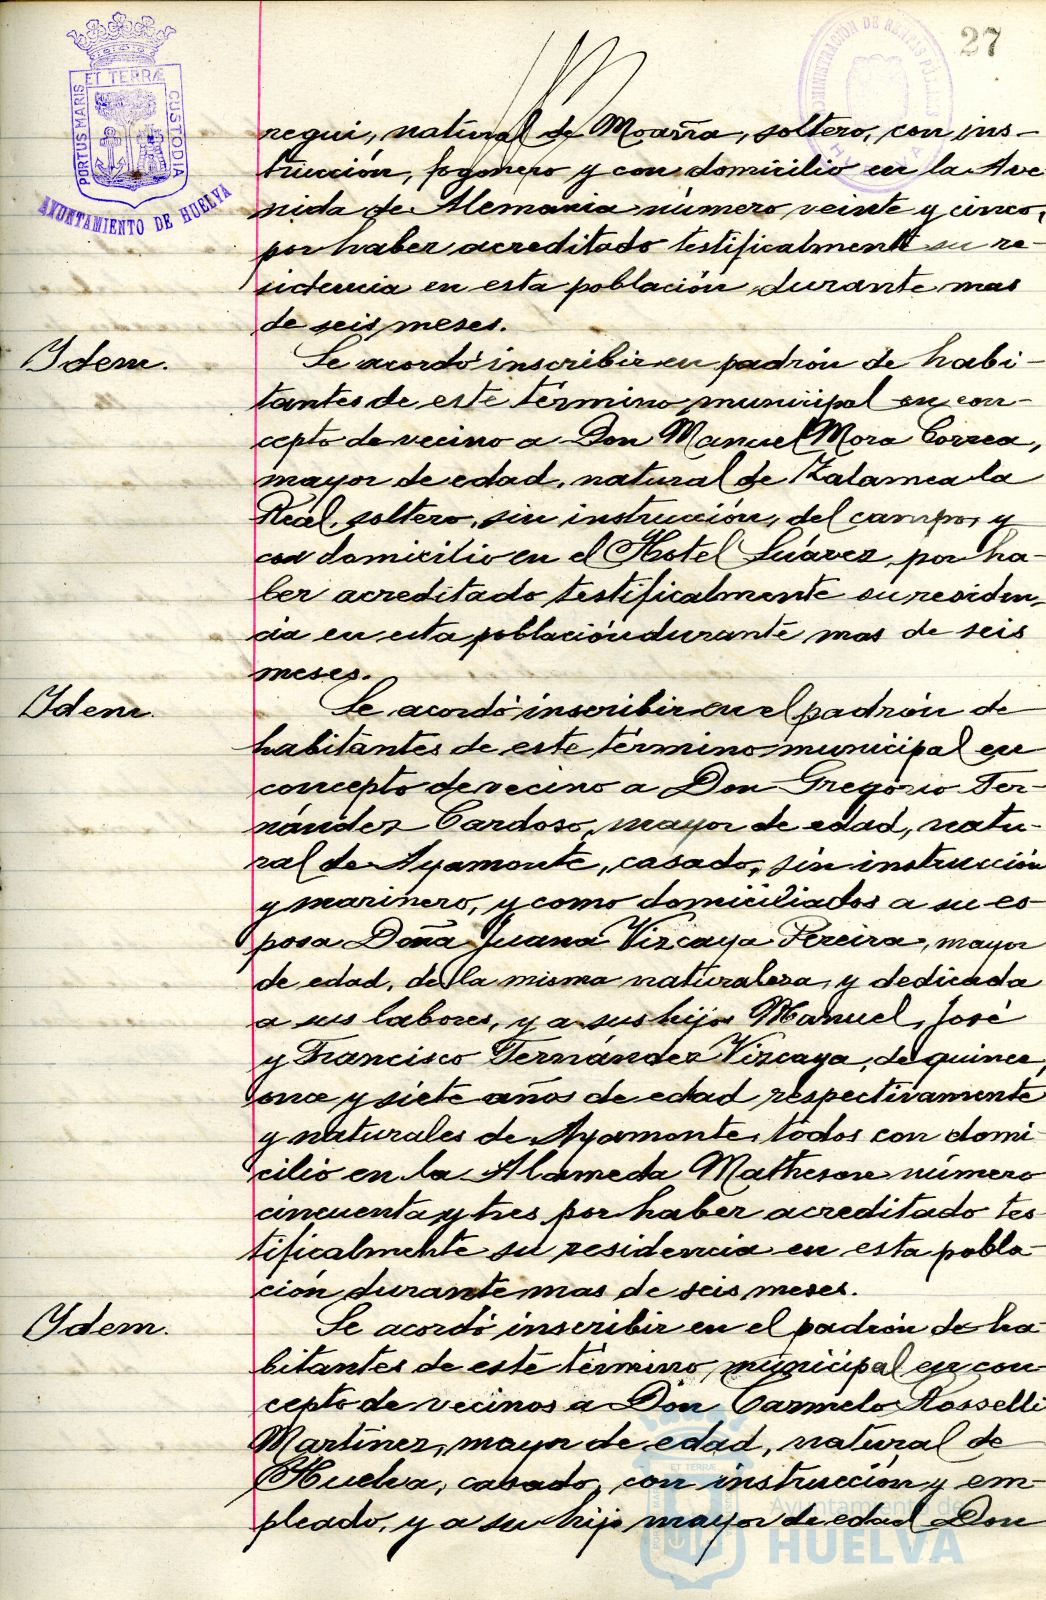 27
ET TERRÆ
PORTUS MARIS
CUSTODIA
AYUNTAMIENTO DE HUELVA
ADMINISTRACIÓN DE RENTAS PÚBLICAS
negui, natural de Moaña, soltero, con ins-
trucción, fogonero y con domicilio en la Ave
nida de Alemania número veinte y cinco,
por haber acreditado testificalmente su re-
sidencia en esta población durante mas
de seis meses.
Idem.
Se acordó inscribir en padrón de habi-
tantes de este término municipal en con-
cepto de vecino a Don Manuel Mora Correa,
mayor de edad, natural de Zalamea la
Real, soltero, sin instrucción, del campo, y
con domicilio en el Hotel Suárez, por ha-
ber acreditado testificalmente su residen-
cia en esta población durante mas de seis
meses.
Idem.
Se acordó inscribir en el padrón de
habitantes de este término municipal en
concepto de vecino a Don Gregorio Fer-
nández Cardoso, mayor de edad, natu-
ral de Ayamonte, casado, sin instrucción
y marinero, y como domiciliados a su es-
posa Doña Juana Vizcaya Pereira, mayor
de edad, de la misma naturaleza, y dedicada
a sus labores, y a sus hijos Manuel, José
y Francisco Fernández Vizcaya, de quince,
once y siete años de edad respectivamente
y naturales de Ayamonte, todos con domi-
cilio en la Alameda Matheson número
cincuenta y tres por haber acreditado tes-
tificalmente su residencia en esta pobla-
ción durante mas de seis meses.
Idem.
Se acordó inscribir en el padrón de ha-
bitantes de este término municipal en con-
cepto de vecinos a Don Carmelo Rosselli
Martínez, mayor de edad, natural de
Huelva, casado, con instrucción y em-
pleado, y a su hijo mayor de edad Don
Ayuntamiento de
HUELVA